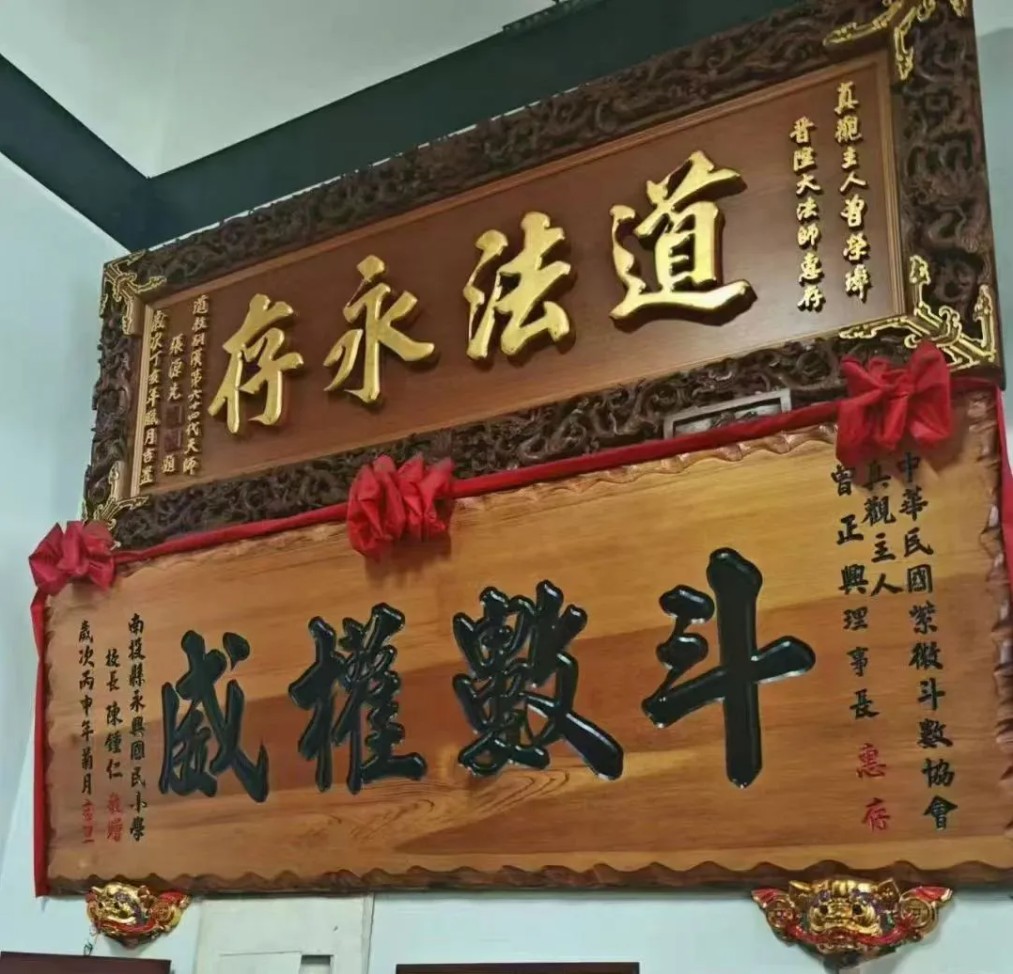 真觀主人曾榮
晉陞大法師惠存
道法永存
道教嗣漢第六十四代天師
張源先 題
歲次丁亥年臘月吉
中華民國紫微斗數協會
真觀主人
曾正興理事長 惠存
斗數權威
南投縣永興國民小學
校長陳鍾仁 敬贈
歲次丙申年菊月吉旦